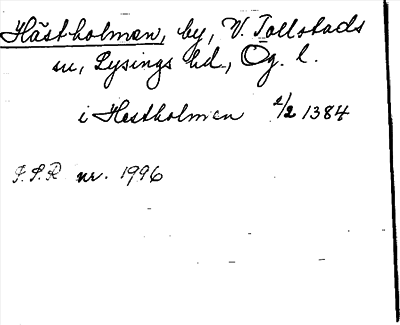 Hästholmen, by, V. Tollstads
sn, Lysings hd., Ög. l.
i Hestholmen 2/2 1384
P.S.R nr. 1996